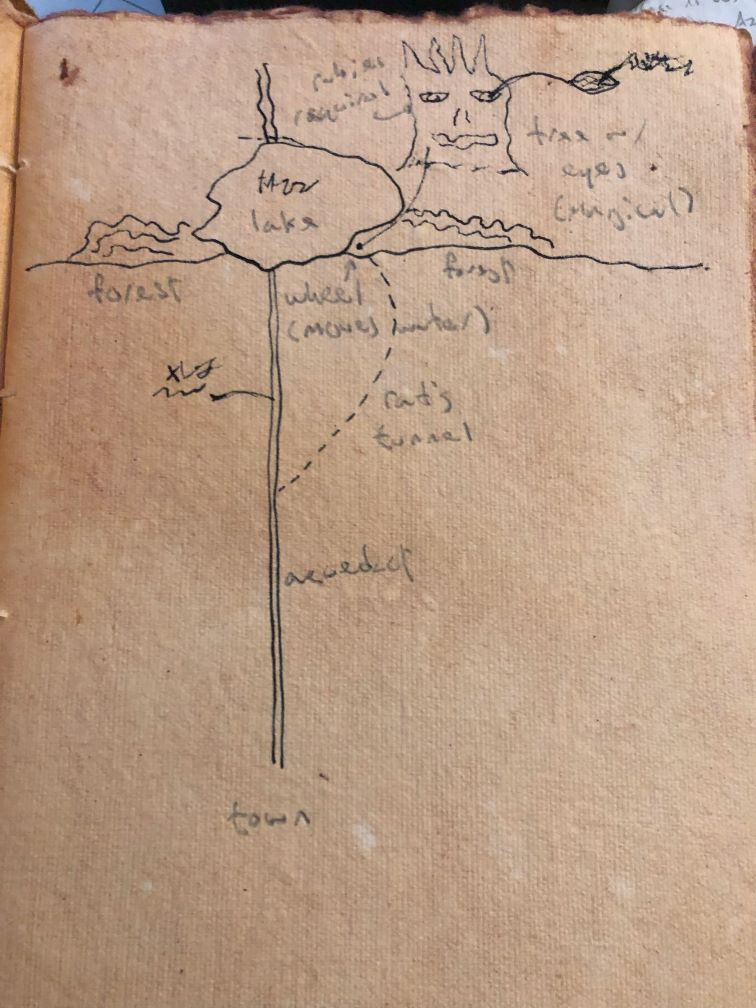 rubies
required
tree w/
eyes
(magical)
lake
forest
forest
wheel
(moves water)
rat's
tunnel
town